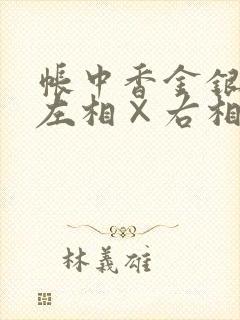 帳中香金銀
左相×右相
林義雄